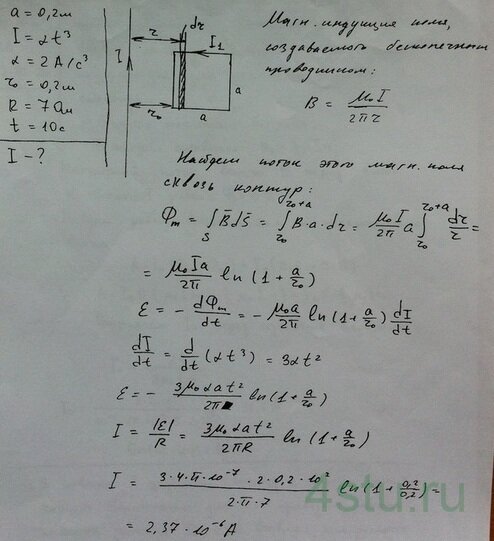 a = 0,2м
I = αt³
α = 2 А/с³
r₀ = 0,2м
R = 7 Ом
t = 10с
I - ?
I
r
dr
I₁
a
r₀
a
Магн. индукция поля,
создаваемого бесконечным
проводником:
B = μ₀I / 2πr
Найдем поток этого магн. поля
сквозь контур:
Φₘ = ∫_S B̄dS̄ = ∫_{r₀}^{r₀+a} B·a·dr = μ₀I/2π a ∫_{r₀}^{r₀+a} dr/r =
= μ₀Ia/2π ln(1 + a/r₀)
ε = - dΦₘ/dt = - μ₀a/2π ln(1 + a/r₀) dI/dt
dI/dt = d/dt (αt³) = 3αt²
ε = - 3μ₀αat²/2π ln(1 + a/r₀)
I = |ε|/R = 3μ₀αat²/2πR ln(1 + a/r₀)
I = 3·4·π·10⁻⁷·2·0,2·10²/2·π·7 ln(1 + 0,2/0,2) =
= 2,37·10⁻⁶ А
4stu.ru